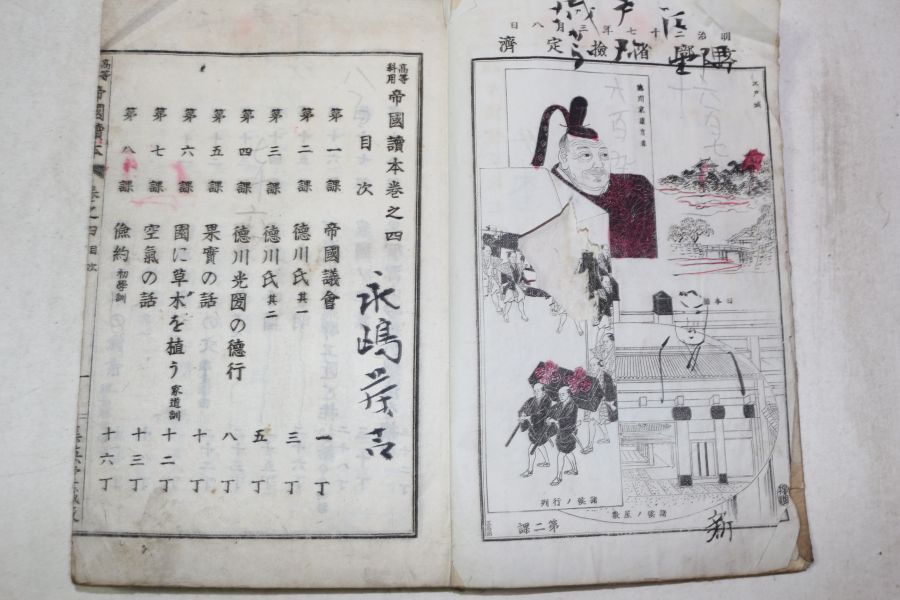 明治二十七年三月八日
文部省檢定濟
江戸城
德川家康肖像
日本橋
諸侯ノ行列
諸侯ノ屋敷
第二課
新
高等科用 帝國讀本卷之四
目次
第一課 帝國議會 一丁
第二課 德川氏 其一 三丁
第三課 德川氏 其二 五丁
第四課 德川光圀の德行 八丁
第五課 果實の話 十丁
第六課 園に草木を植う 家道訓 十二丁
第七課 空氣の話 十三丁
第八課 儉約 初學訓 十六丁
高等科用 帝國讀本 卷之四 目次